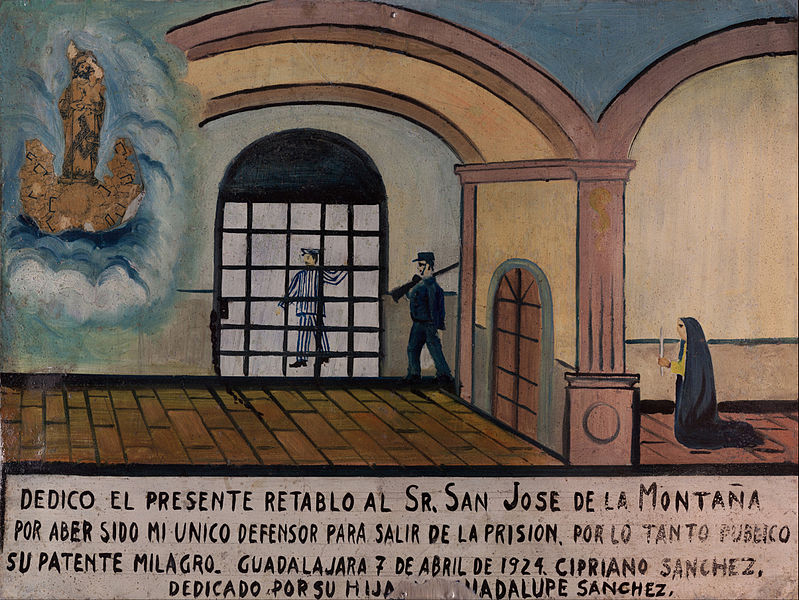 DEDICO EL PRESENTE RETABLO AL SR. SAN JOSE DE LA MONTAÑA
POR ABER SIDO MI UNICO DEFENSOR PARA SALIR DE LA PRISION, POR LO TANTO PUBLICO
SU PATENTE MILAGRO. GUADALAJARA 7 DE ABRIL DE 1924. CIPRIANO SANCHEZ,
DEDICADO POR SU HIJA UADALUPE SANCHEZ,